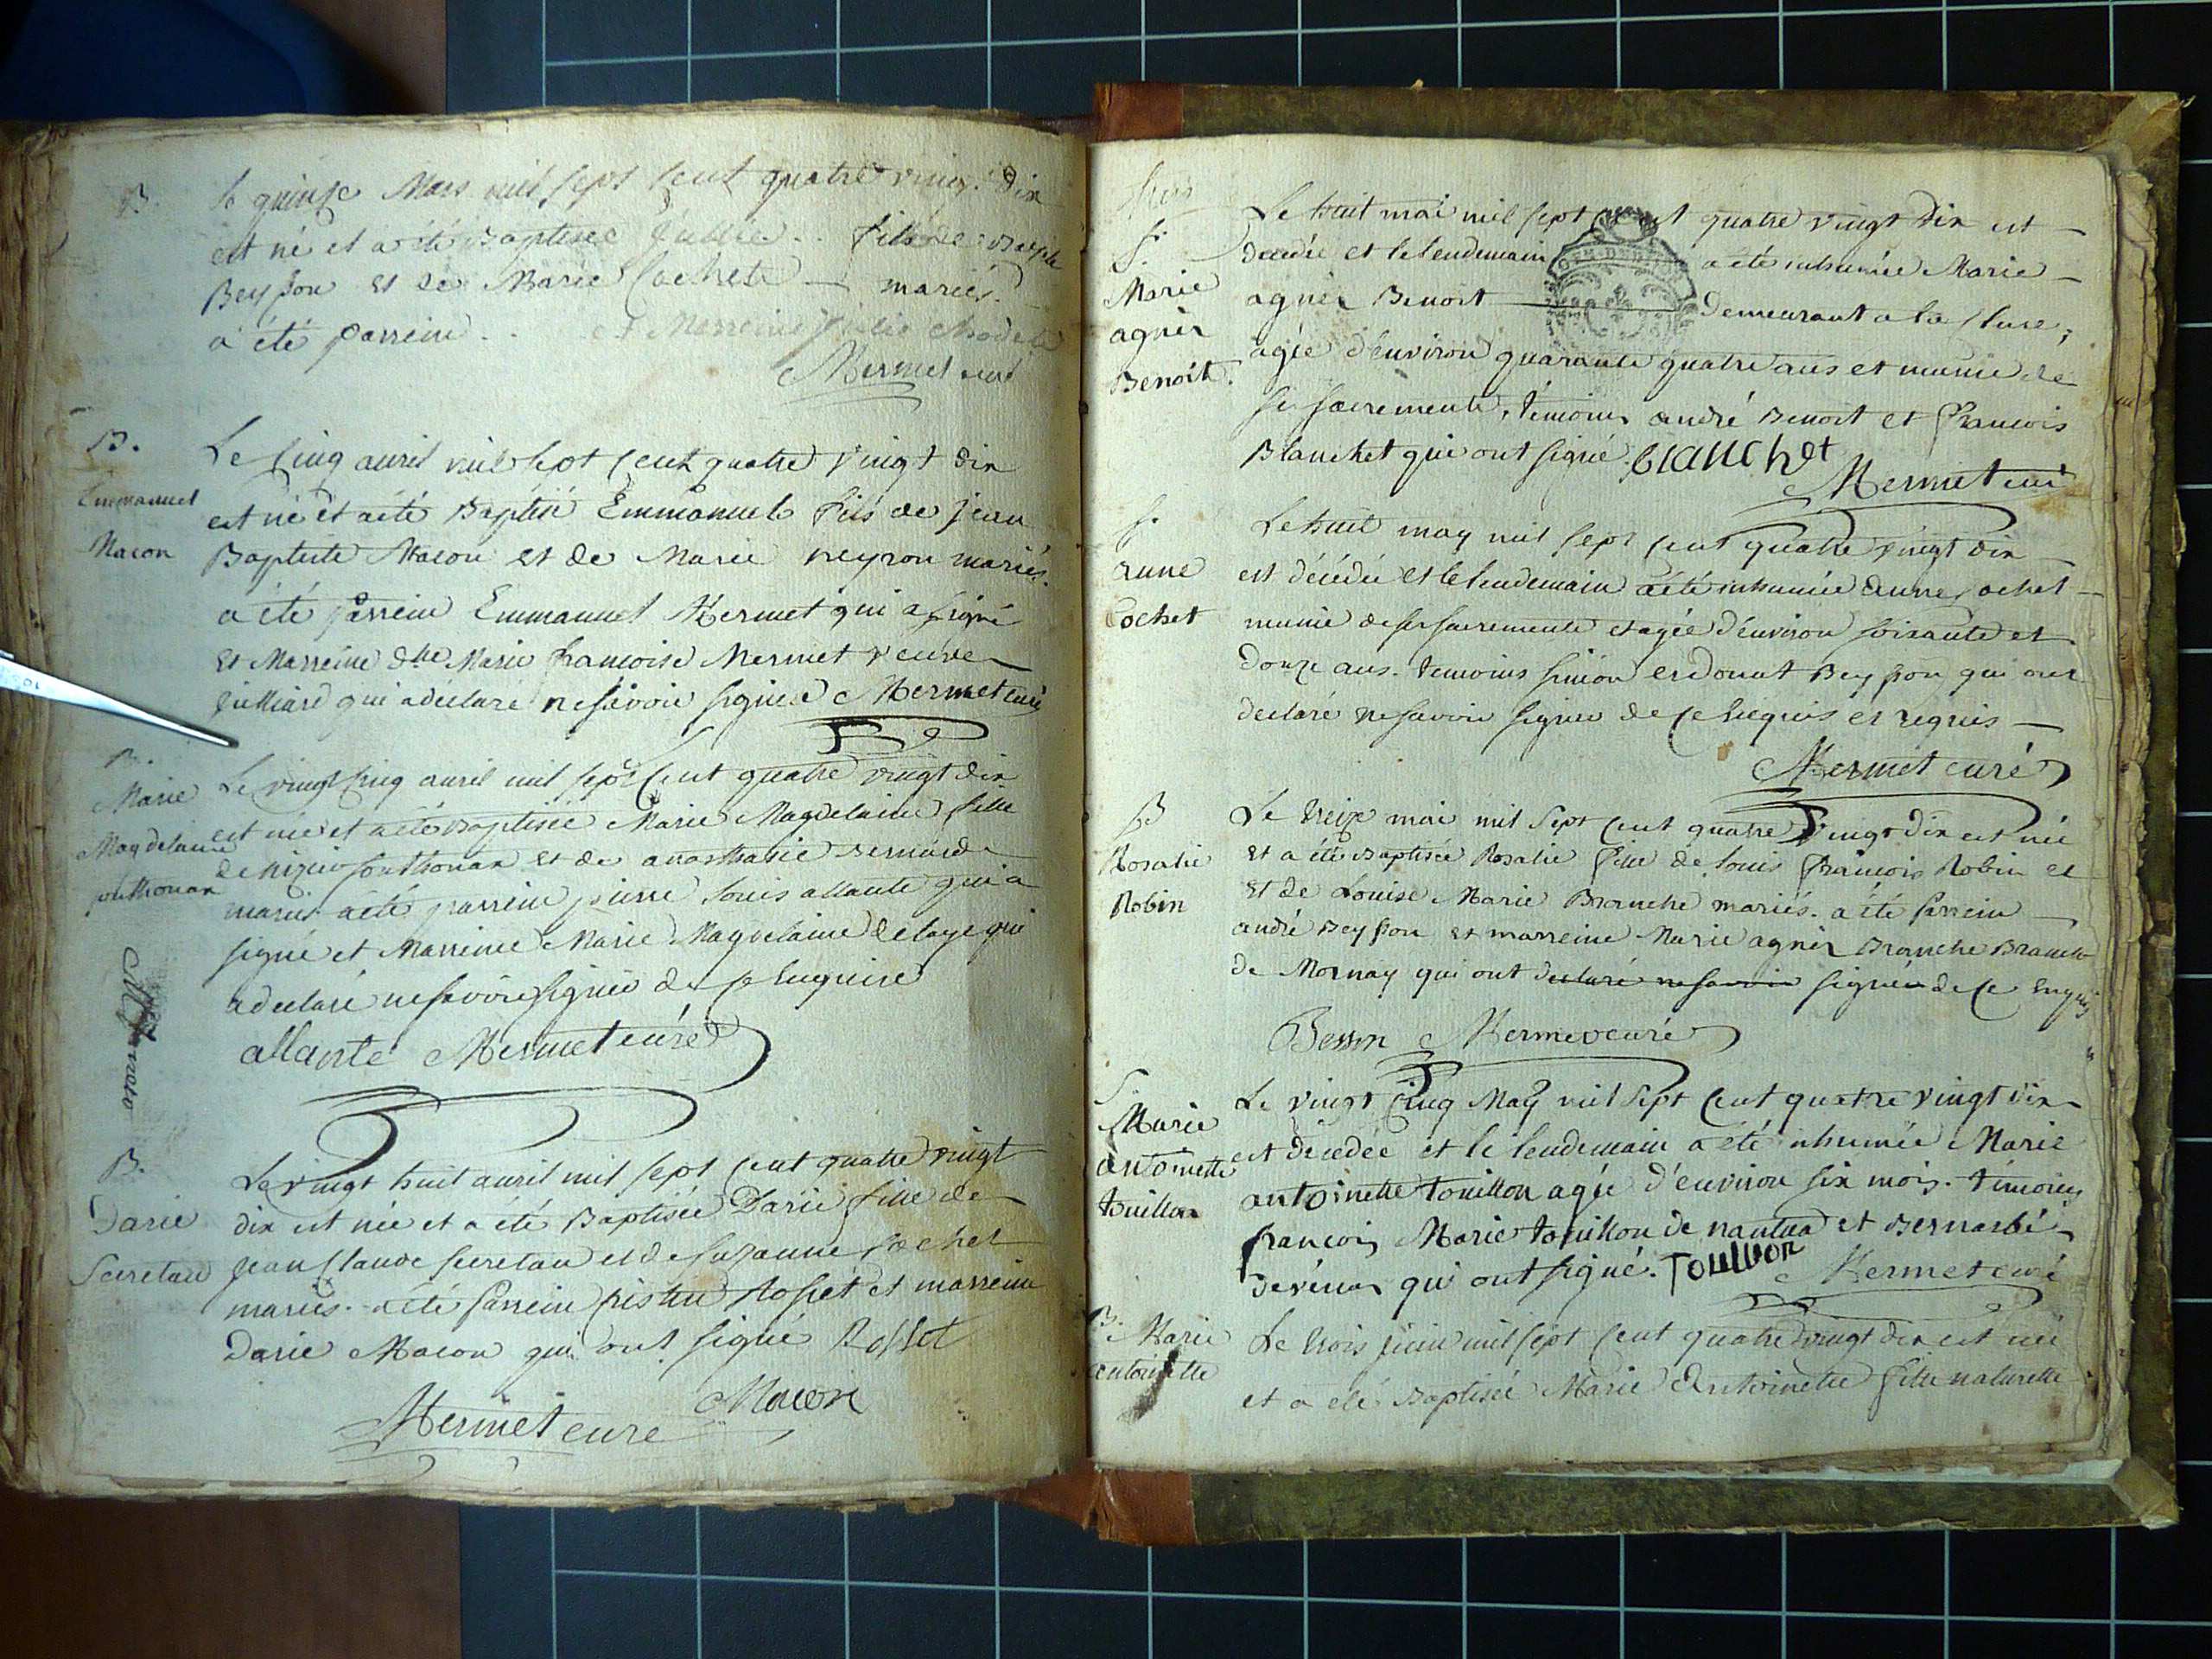 B.
Le quinze Mars mil sept cent quatre vingt Dix
est né et a été Baptisée Julie fille de
Beysson et de Marie Cochete — mariés.
a été parrein et Marreine Julie
Mermet curé
B.
Emmanuel
Macon
Le Cinq avril mil sept cent quatre vingt dix
est né et a été Baptisé Emmanuel fils de jean
Baptiste Macon et de Marie neyron mariés.
a été parrein Emmanuel Mermet qui a signé
et Marreine dlle Marie francoise Mermet veuve
juilliard qui a declaré ne savoir signer Mermet curé
B.
Marie
Magdelaine
ponthonax
Le vingt cinq avril mil sept cent quatre vingt dix
est née et a été Baptisée Marie Magdelaine fille
de nizier ponthonax et de anasthasie Bernarde
mariés a été parrein pierre Louis allante qui a
signé et Marreine Marie Magdelaine delaye qui
a declaré ne savoir signer de ce Enquise
allante Mermet curé
B.
Darie
Secretan
Le vingt huit avril mil sept cent quatre vingt
dix est née et a été Baptisée Darie fille de
jean Claude secretan et de suzanne Cochet
mariés. a été parrein Rosset et marreine
Darie Macon qui ont signé Rosset
Macon
Mermet cure
S.
Marie
agnès
Benoit.
Le huit mai mil sept cent quatre vingt Dix est
decedée et le lendemain a été inhumée Marie
agnès Benoit — Demeurant a la Cluse,
agée d'environ quarante quatre ans et munie de
ses sacrements, témoins andré Benoit et francois
Blanchet qui ont signé Blanchet
Mermet curé
S.
anne
Cochet
Le huit may mil sept cent quatre vingt dix
est décédée et le lendemain a été inhumée anne Cochet
munie de ses sacrements et agée d'environ soixante et
douze ans. temoins simon et donat Beysson qui ont
declaré ne savoir signer de ce Enquis et requis —
Mermet curé
B
Rosalie
Robin
Le treize mai mil sept cent quatre vingt Dix est née
et a été Baptisée Rosalie fille de Louis francois Robin et
et de Louise Marie Branche mariés. a été parrein
andré Beysson et marreine Marie agnès Branche Branche
de Mornay qui ont declaré ne savoir signér de ce Enquis
Besson Mermet curé
S.
Marie
antoinette
touillon
Le vingt Cinq May mil sept Cent quatre vingt dix
est décedée et le lendemain a été inhumée Marie
antoinette touillon agée d'environ six mois. témoins
francois Marie touillon de nantua et
qui ont signé. Touillon Mermet curé
B.
Marie
antoinette
Le trois juin mil sept cent quatre vingt dix est née
et a été Baptisée Marie Antoinette fille naturelle